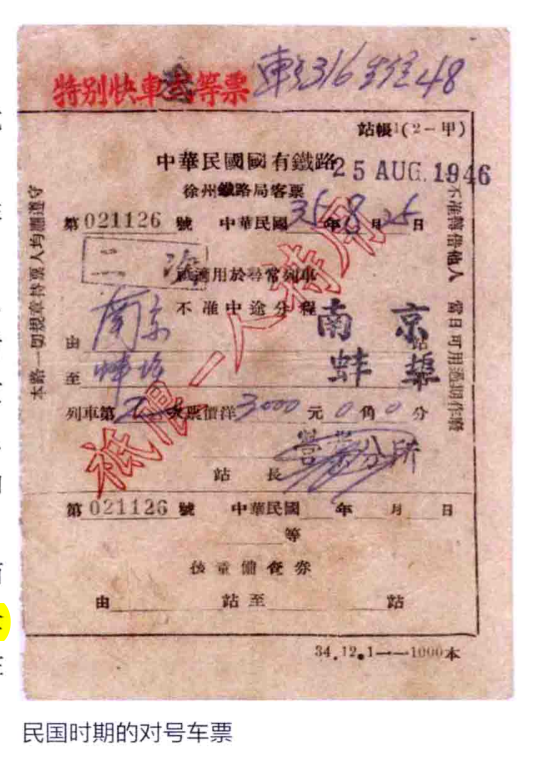 特别快車弍等票 車316 號位48
站帳1(2－甲)
中華民國國有鐵路
25 AUG. 1946
徐州鐵路局客票
第021126號 中華民國35年8月25日
祇適用於尋常列車
不准中途分程
由 南京 南京
至 蚌埠 蚌埠
列車第2次票價洋3000元0角0分
站長
祇限一人持用
本路一切規章持票人均應遵守
不准轉借他人 當日可用過期作廢
第021126號 中華民國 年 月 日
等
後重備查券
由 站至 站
34.12.1——1000本
民国时期的对号车票